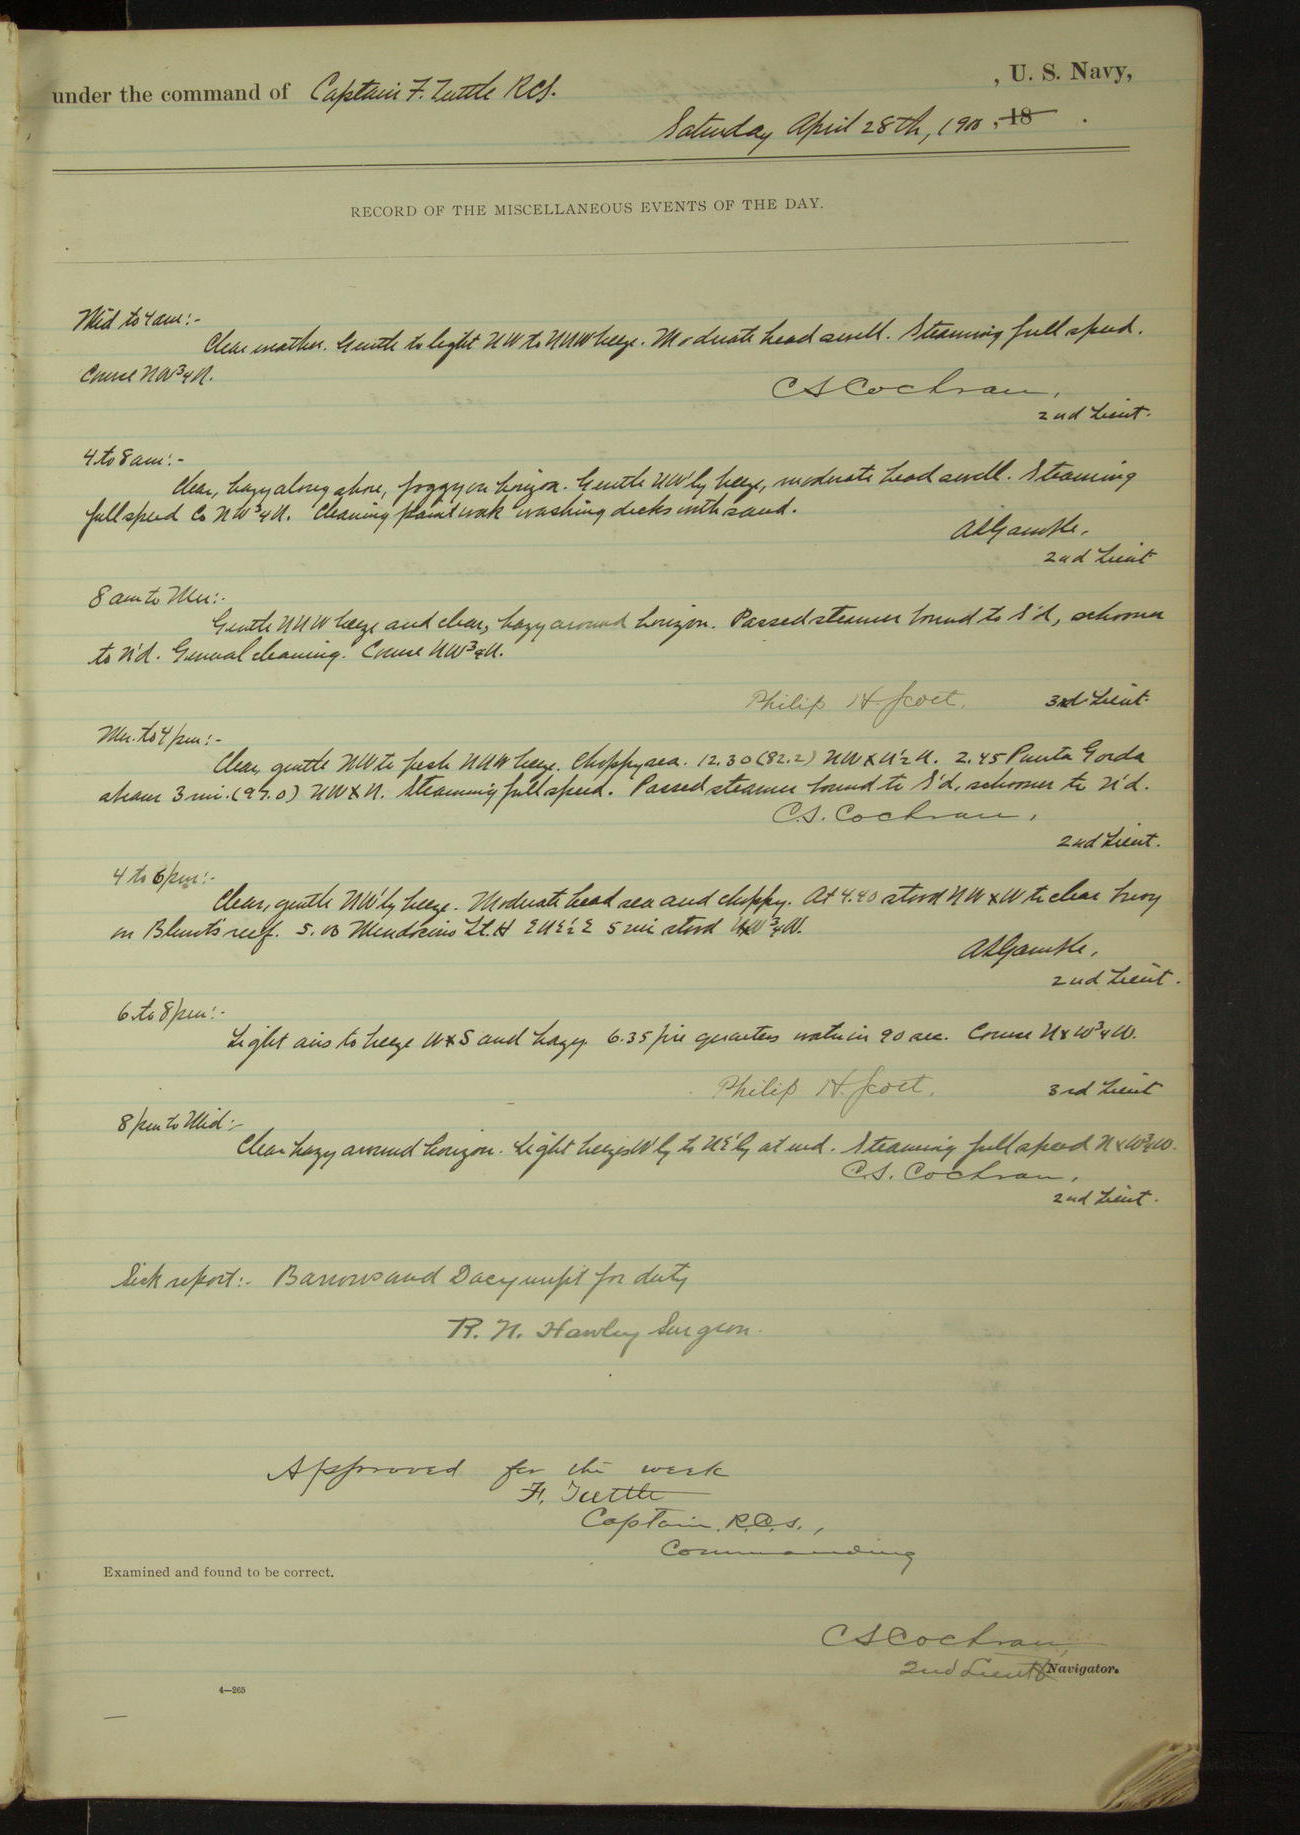 under the command of Captain F. Tuttle RCS. , U. S. Navy,
Saturday April 28th, 1900, 18 .
RECORD OF THE MISCELLANEOUS EVENTS OF THE DAY.
Mid to 4am:-
Clear weather. Gentle to light NW to NNW breeze. Moderate head swell. Steaming full speed.
Course NW3/4N.
C S Cochran,
2nd Lieut.
4 to 8am:-
Clear, hazy along shore, foggy on horizon. Gentle NW'ly breeze, moderate head swell. Steaming
full speed Co NW3/4N. Cleaning paint work washing decks with sand.
A L Gamble,
2nd Lieut
8am to Mer:-
Gentle NNW breeze and clear, hazy around horizon. Passed steamer bound to S'd, schooner
to N'd. General cleaning. Course NW3/4N.
Philip H Scott. 3rd Lieut.
Mer. to 4pm:-
Clear, gentle NW to fresh NNW breeze. Choppy sea. 12.30 (82.2) NWxN1/2N. 2.45 Punta Gorda
abeam 3 mi. (97.0) NWxN. Steaming full speed. Passed steamer bound to S'd, schooner to N'd.
C.S. Cochran,
2nd Lieut.
4 to 6pm:-
Clear, gentle NW'ly breeze. Moderate head sea and choppy. At 4.40 stood NWxW to clear buoy
on Blunt's reef. 5.00 Mendocino Lt. H ENE1/2E 5 mi stood NxW3/4W.
A L Gamble,
2nd Lieut.
6 to 8pm:-
Light airs to breeze WxS and hazy. 6.35 fire quarters water in 90 sec. Course NxW3/4W.
Philip H. Scott. 3rd Lieut
8pm to Mid:-
Clear hazy around horizon. Light breezes W'ly to NE'ly at end. Steaming full speed NxW3/4W.
C.S. Cochran,
2nd Lieut.
Sick report:- Barrows and Dacy unfit for duty
R. N. Hawley Surgeon.
Approved for the week
F. Tuttle
Captain. R.C.S.,
Commanding
Examined and found to be correct.
C S Cochran,
2nd Lieut & Navigator.
4—265